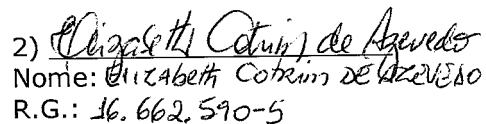 2) Elizabeth Cotrim de Azevedo
Nome: Elizabeth Cotrim DE AZEVEDO
R.G.: 16.662.590-5